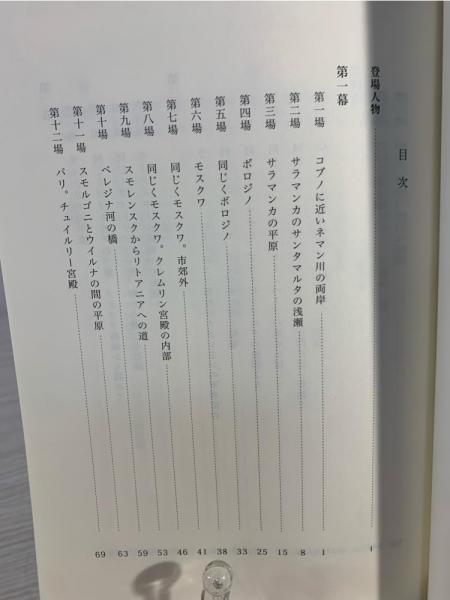 目次
登場人物 i
第一幕
第一場 コブノに近いネマン川の両岸 1
第二場 サラマンカのサンタマルタの浅瀬 8
第三場 サラマンカの平原 15
第四場 ボロジノ 25
第五場 同じくボロジノ 33
第六場 モスクワ 38
第七場 同じくモスクワ。市郊外 41
第八場 同じくモスクワ。クレムリン宮殿の内部 46
第九場 スモレンスクからリトアニアへの道 53
第十場 ベレジナ河の橋 59
第十一場 スモルゴニとウイルナの間の平原 63
第十二場 パリ。チュイルリー宮殿 69